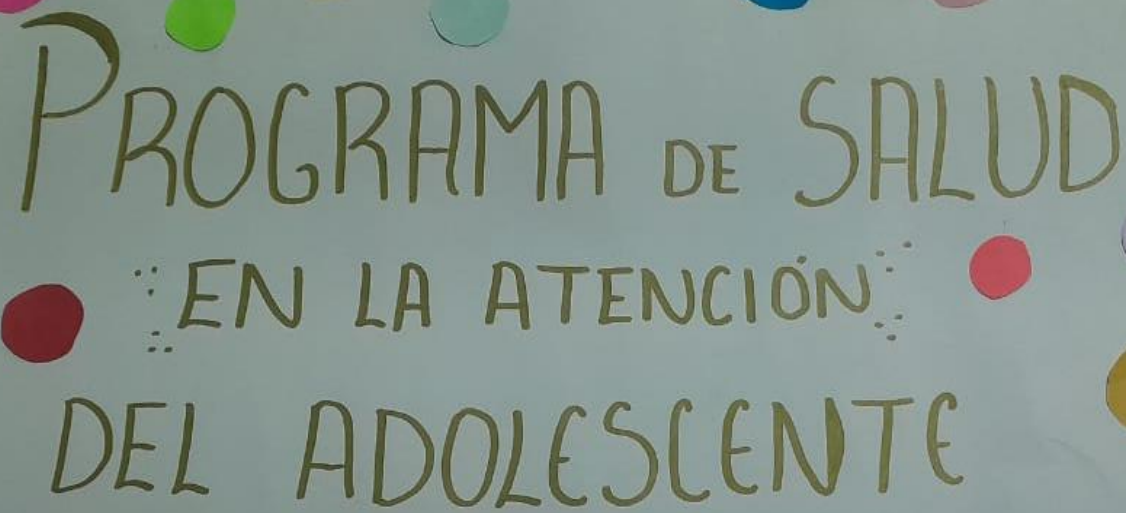 PROGRAMA DE SALUD
EN LA ATENCIÓN
DEL ADOLESCENTE